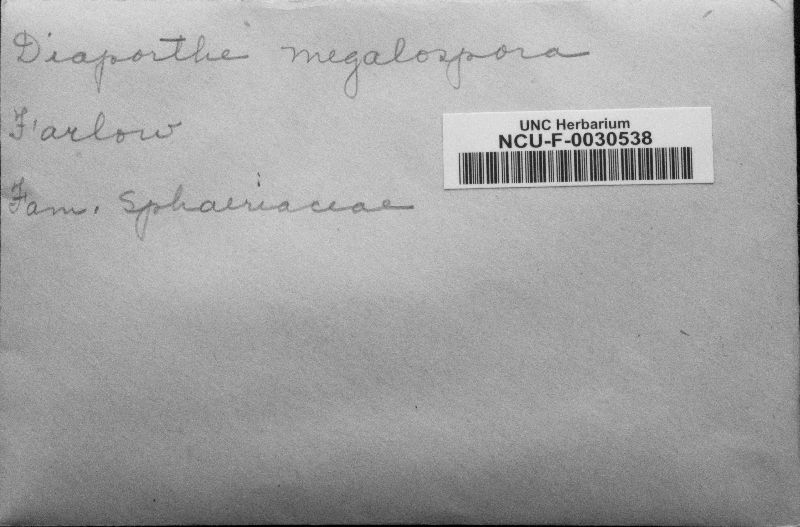 Diaporthe megalospora
Farlow
Fam. Sphaeriaceae
UNC Herbarium
NCU-F-0030538